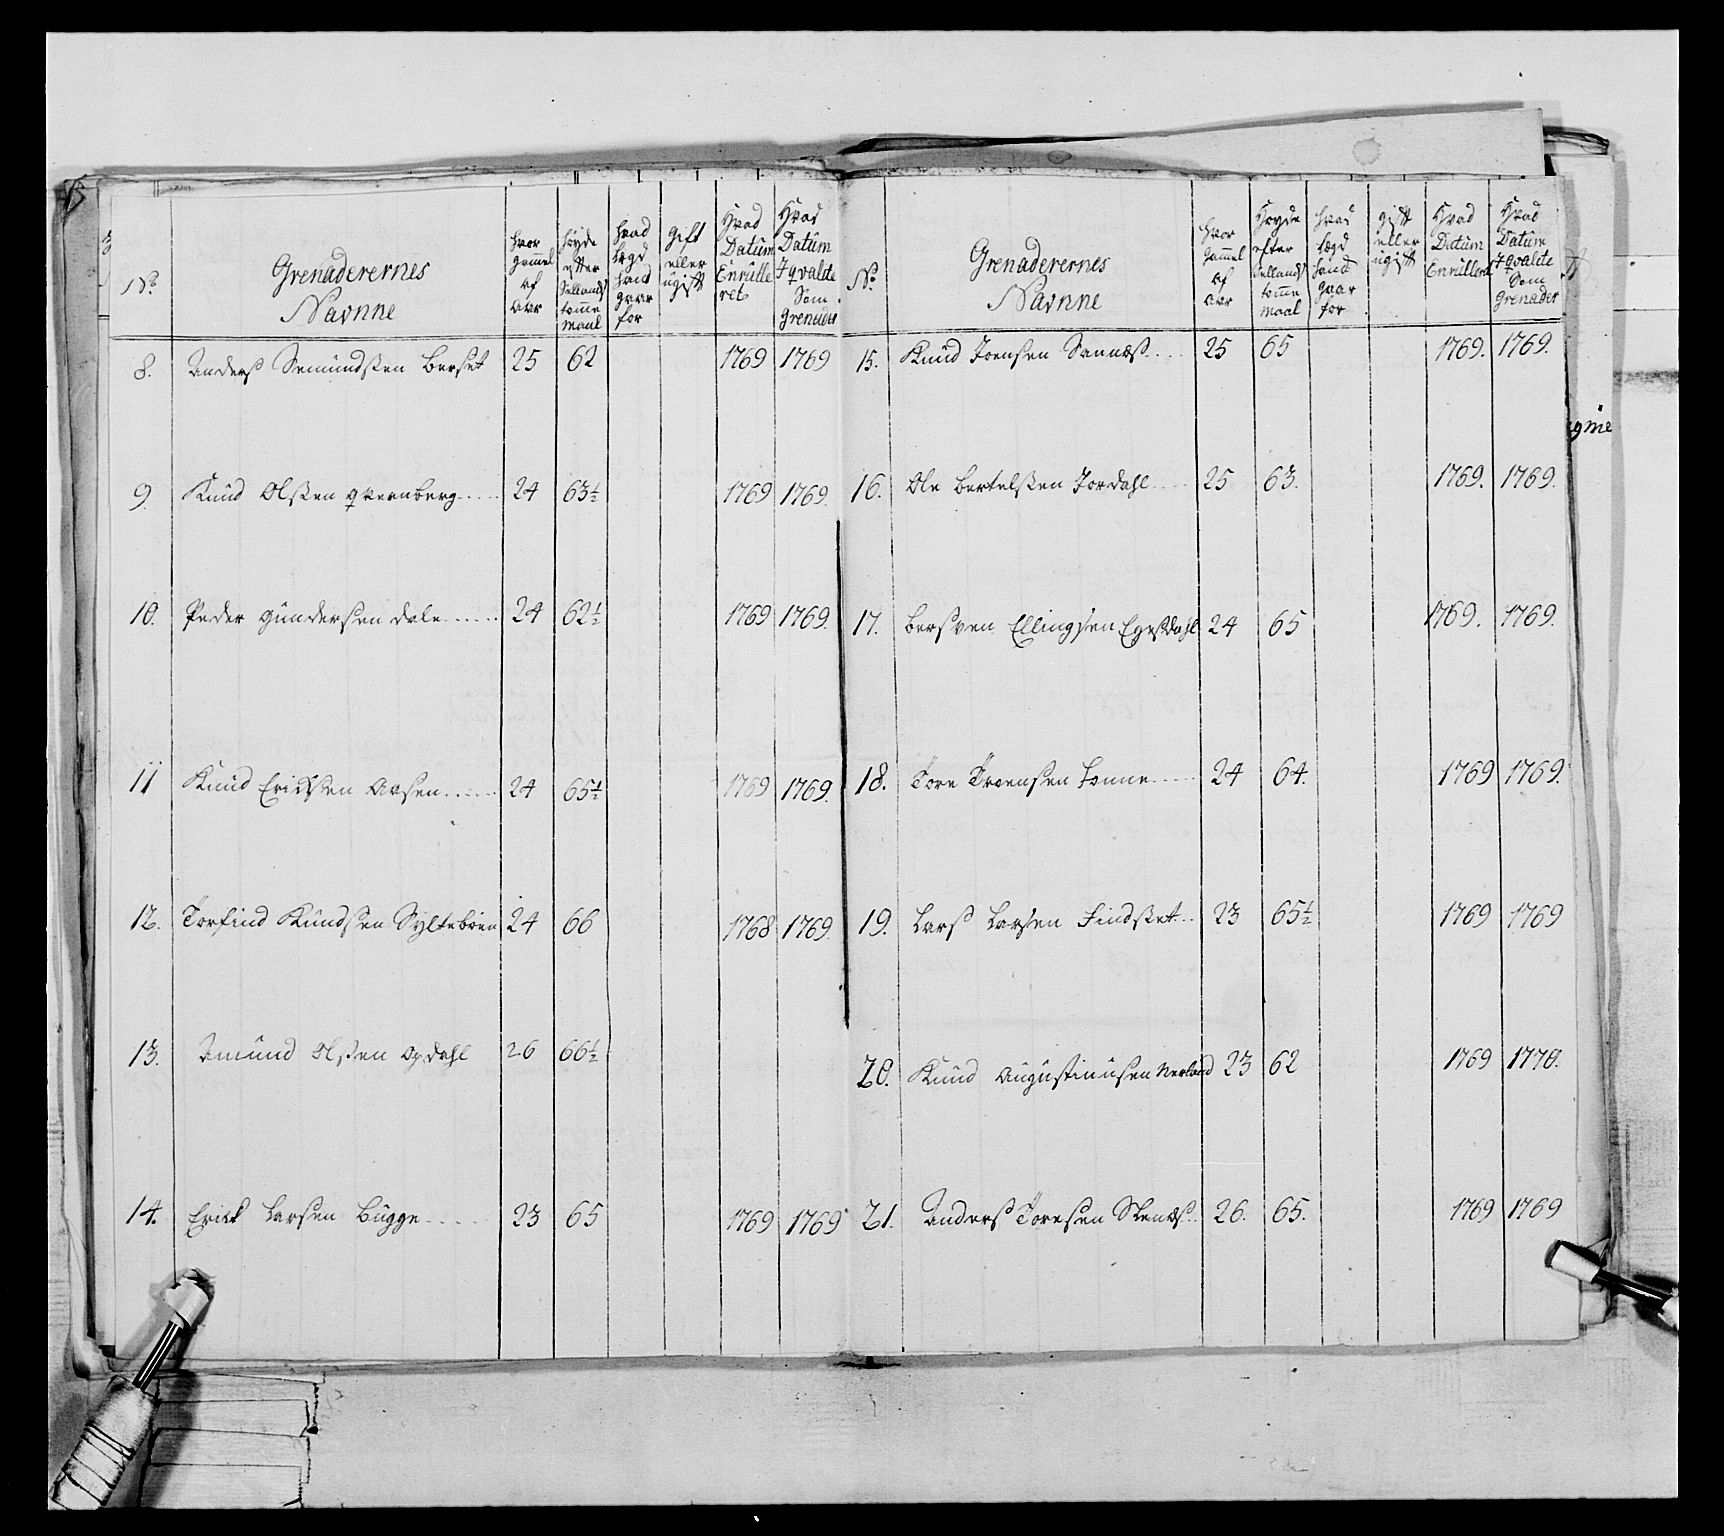 No.
Grenaderernes
Navnne
Hvor
gammel
af
aar
Høyde
efter
Sellands
tomme
maal
hvad
Lægd
hand
gaar
for
gift
eller
ugift
Hvad
Datum
Enrulle
ret
Hvad
Datum
Jqvalde
Som
Grenader
8. Anders Semundssen Berset 25 62 1769 1769
9. Knud Olssen qvernberg 24 63½ 1769 1769.
10. Peder gundersen dale 24 62½ 1769 1769.
11 Knud Ericksen Aasen 24 65½ 1769 1769.
12. Torfind Knudssen Syltebøen 24 66 1768 1769.
13. Amund Olssen Opdahl 26 66½
14. Erick Larssen Bugge 23 65 1769 1769
No.
Grenaderernes
Navnne
Hvor
gammel
af
aar
Høyde
efter
Sellands
tomme
maal
hvad
Lægd
hand
gaar
for
gift
eller
ugift
Hvad
Datum
Enrulleret
Hvad
Datum
Jqvalde
Som
Grenader
15. Knud Joensen Sannæs 25 65 1769. 1769.
16. Ole Bertelssen Jordahl 25 63. 1769. 1769.
17. Bersven Ellingsen Egesdahl 24 65 1769. 1769.
18. Tore Troensen Tonne 24 64. 1769 1769.
19. Lars Larsen Findset 23 65½ 1769 1769
20. Knud Augustinusen Nerland 23 62 1769 1770.
21. Anders Toresen Stenæs 26. 65. 1769 1769